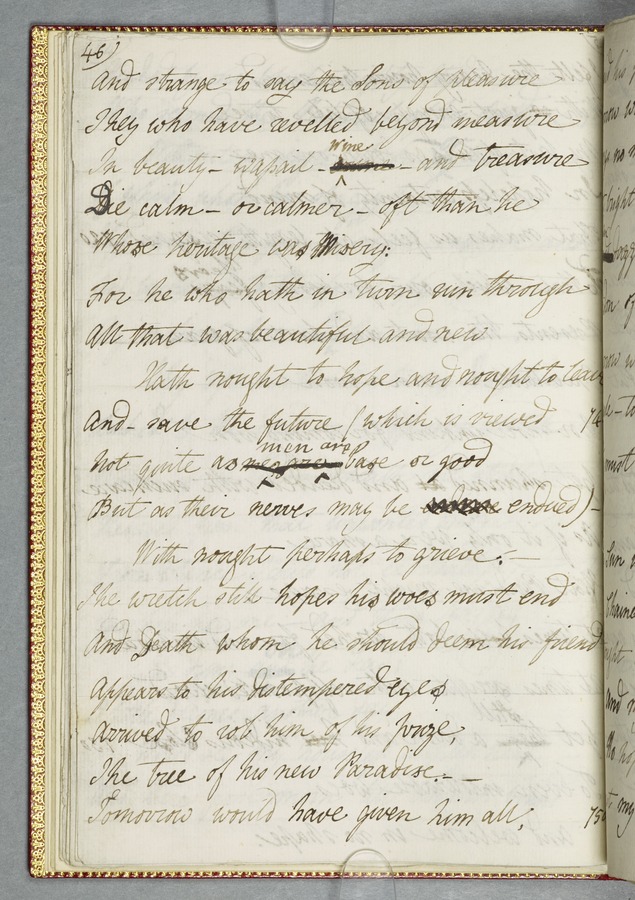 46)
And strange to say the Sons of pleasure
They who have revelled beyond measure
In beauty – wassail – wine – and treasure
Die calm – or calmer – oft than he
Whose heritage was Misery:
For he who hath in turn run through
All that was beautiful and new
Hath nought to hope and nought to leave
And – save the future (which is viewed
Not quite as men are base or good
But as their nerves may be endued) –
With nought perhaps to grieve: –
The wretch still hopes his woes must end
And Death whom he should deem his friend
Appears to his distempered eyes
Arrived to rob him of his prize,
The tree of his new Paradise. –
Tomorrow would have given him all,